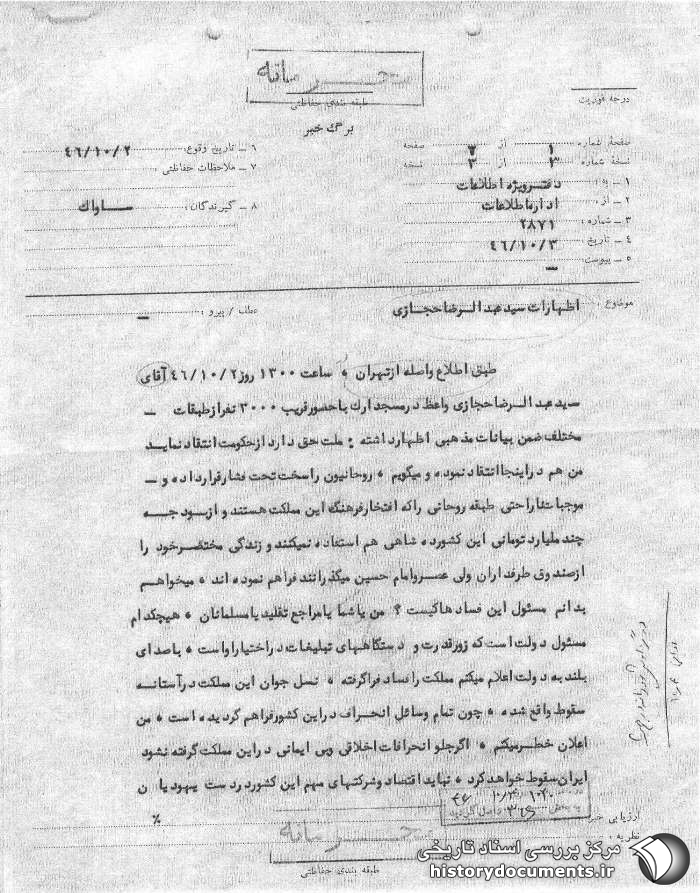 محرمانه
طبقه بندی حفاظتی
برگ خبر
درجه فوریت
صفحه شماره ۱ از ۲ صفحه
نسخه شماره ۳ از ۳ نسخه
۱ ـ به : دفتر ویژه اطلاعات
۲ ـ از : اداره اطلاعات
۳ ـ شماره : ۲۸۷۱
۴ ـ تاریخ : ۴۶/۱۰/۳
۵ ـ پیوست : ـ
۶ ـ تاریخ وقوع : ۴۶/۱۰/۲
۷ ـ ملاحظات حفاظتی :
۸ ـ گیرندگان : ساواك
موضوع : اظهارات سید عبدالرضا حجازی
عطف / پیرو : ـ
طبق اطلاع واصله از تهران ، ساعت ۱۳۰۰ روز ۴۶/۱۰/۲ آقای
سید عبدالرضا حجازی واعظ در مسجد ارك با حضور قریب ۳۰۰۰ نفر از طبقات ـ
مختلف ضمن بیانات مذهبی اظهار داشته : ملت حق دارد از حکومت انتقاد نماید
من هم در اینجا انتقاد نموده و میگویم ، روحانیون را سخت تحت فشار قرار داده و ـ
موجبات ناراحتی طبقه روحانی را که افتخار فرهنگ این مملکت هستند و از بودجه
چند ملیارد تومانی این کشور ده شاهی هم استفاده نمیکنند و زندگی مختصر خود را
از صندوق طرفداران ولی عصر و امام حسین میگذرانند فراهم نموده اند ، میخواهم
بدانم مسئول این فسادها کیست ؟ من یا شما یا مراجع تقلید یا مسلمانان ، هیچکدام
مسئول دولت است که زور قدرت و دستگاههای تبلیغات در اختیار اوست ، با صدای
بلند به دولت اعلام میکنم مملکت را فساد فرا گرفته ، نسل جوان این مملکت در آستانه
سقوط واقع شده ، چون تمام وسائل انحراف در این کشور فراهم گردیده است ، من
اعلان خطر میکنم ، اگر جلو انحرافات اخلاقی وبی ایمانی در این مملکت گرفته نشود
ایران سقوط خواهد کرد ، نباید اقتصاد وشرکتهای مهم این کشور در دست یهودیان
٪
ارزیابی خبر
نظریه :
محرمانه
طبقه بندی حفاظتی
مرکز بررسی اسناد تاریخی
historydocuments.ir